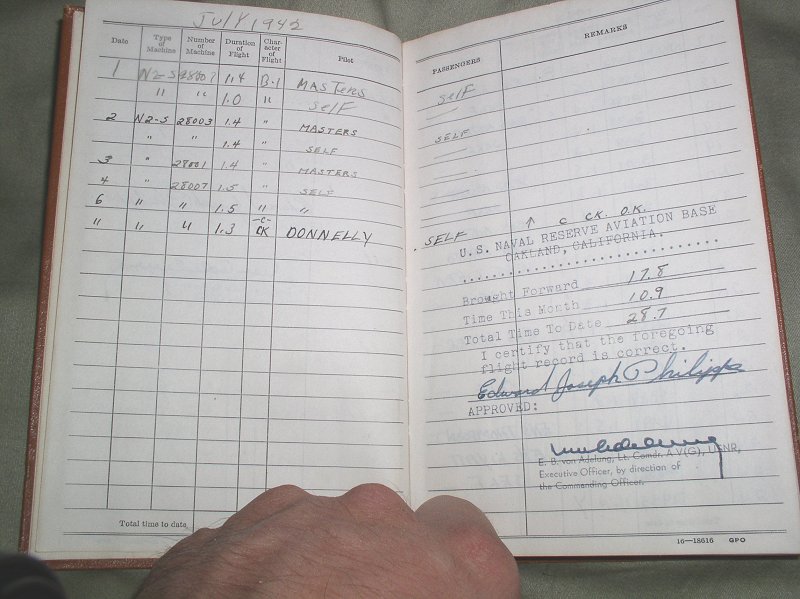 JULY 1942
Date Type of Machine Number of Machine Duration of Flight Character of Flight Pilot
1 N2-S 1.4 B-1 MASTERS
" " 1.0 " SELF
2 N2-S 28003 1.4 " MASTERS
" " 1.4 " SELF
3 " 27001 1.4 " MASTERS
4 " 28007 1.5 " SELF
6 " " 1.5 " "
" " " 1.3 -C- CK DONNELLY
Total time to date,
PASSENGERS REMARKS
SELF
SELF
SELF ↑ C CK. O.K.
U.S. NAVAL RESERVE AVIATION BASE
OAKLAND, CALIFORNIA.
Brought Forward 17.8
Time This Month 10.9
Total Time To Date 28.7
I certify that the foregoing
flight record is correct.
Edward Joseph Philipps
APPROVED:
E. B. von Adelung, Lt. Comdr. A-V(G), USNR,
Executive Officer, by direction of
the Commanding Officer.
16—18616 GPO